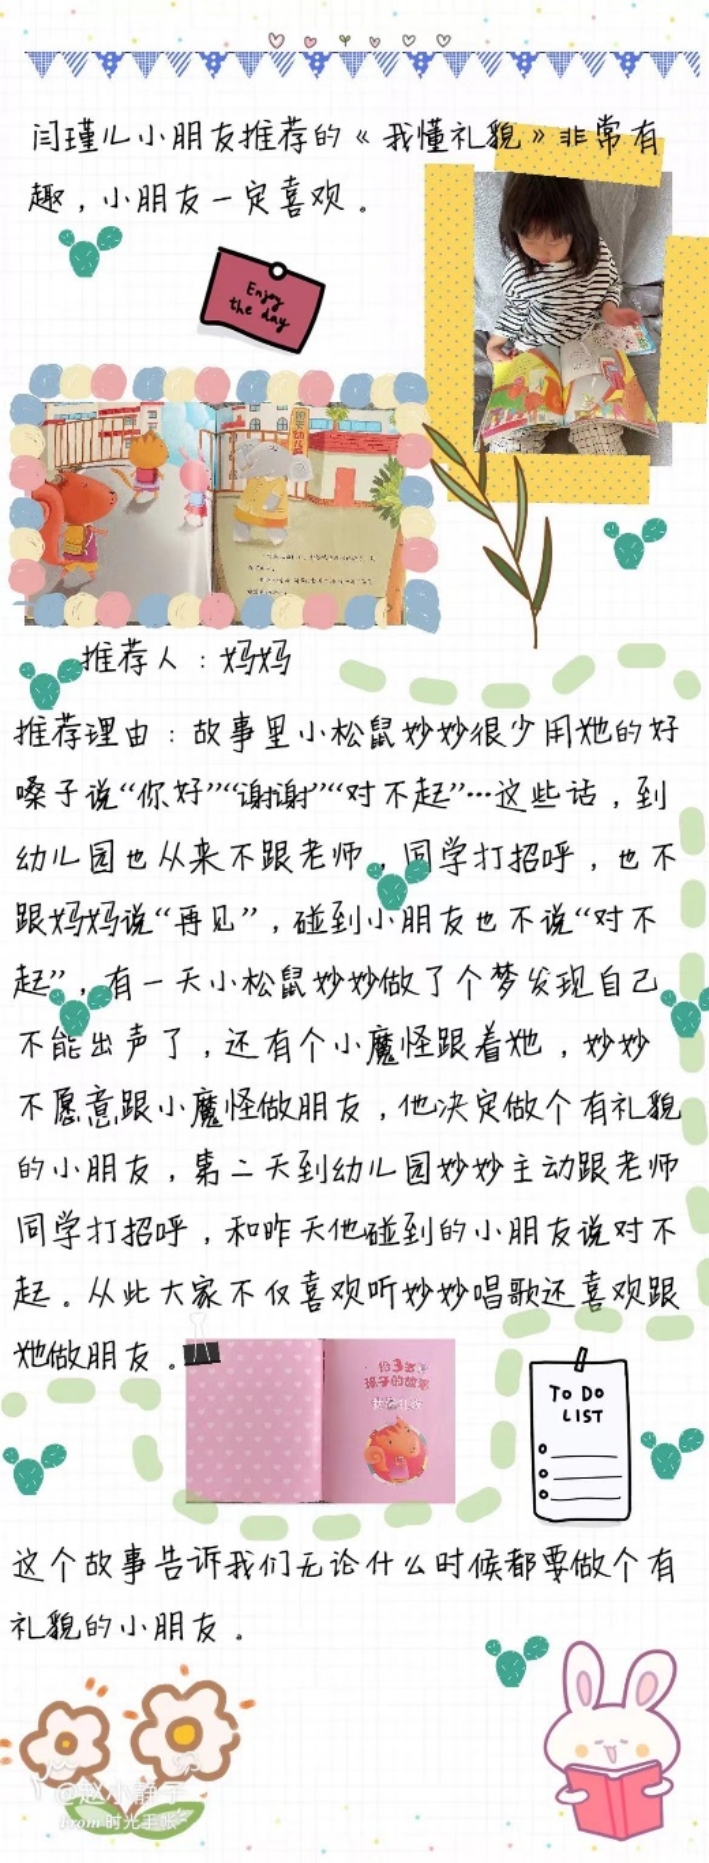 闫瑾儿小朋友推荐的《我懂礼貌》非常有
趣，小朋友一定喜欢。
Enjoy
the day
推荐人：妈妈
推荐理由：故事里小松鼠妙妙很少用她的好
嗓子说“你好”“谢谢”“对不起”…这些话，到
幼儿园也从来不跟老师，同学打招呼，也不
跟妈妈说“再见”，碰到小朋友也不说“对不
起”，有一天小松鼠妙妙做了个梦发现自己
不能出声了，还有个小魔怪跟着她，妙妙
不愿意跟小魔怪做朋友，他决定做个有礼貌
的小朋友，第二天到幼儿园妙妙主动跟老师
同学打招呼，和昨天他碰到的小朋友说对不
起。从此大家不仅喜欢听妙妙唱歌还喜欢跟
她做朋友。
孩子的故事
我懂礼貌
TO DO
LIST
这个故事告诉我们无论什么时候都要做个有
礼貌的小朋友。
@赵小静子
From 时光手帐